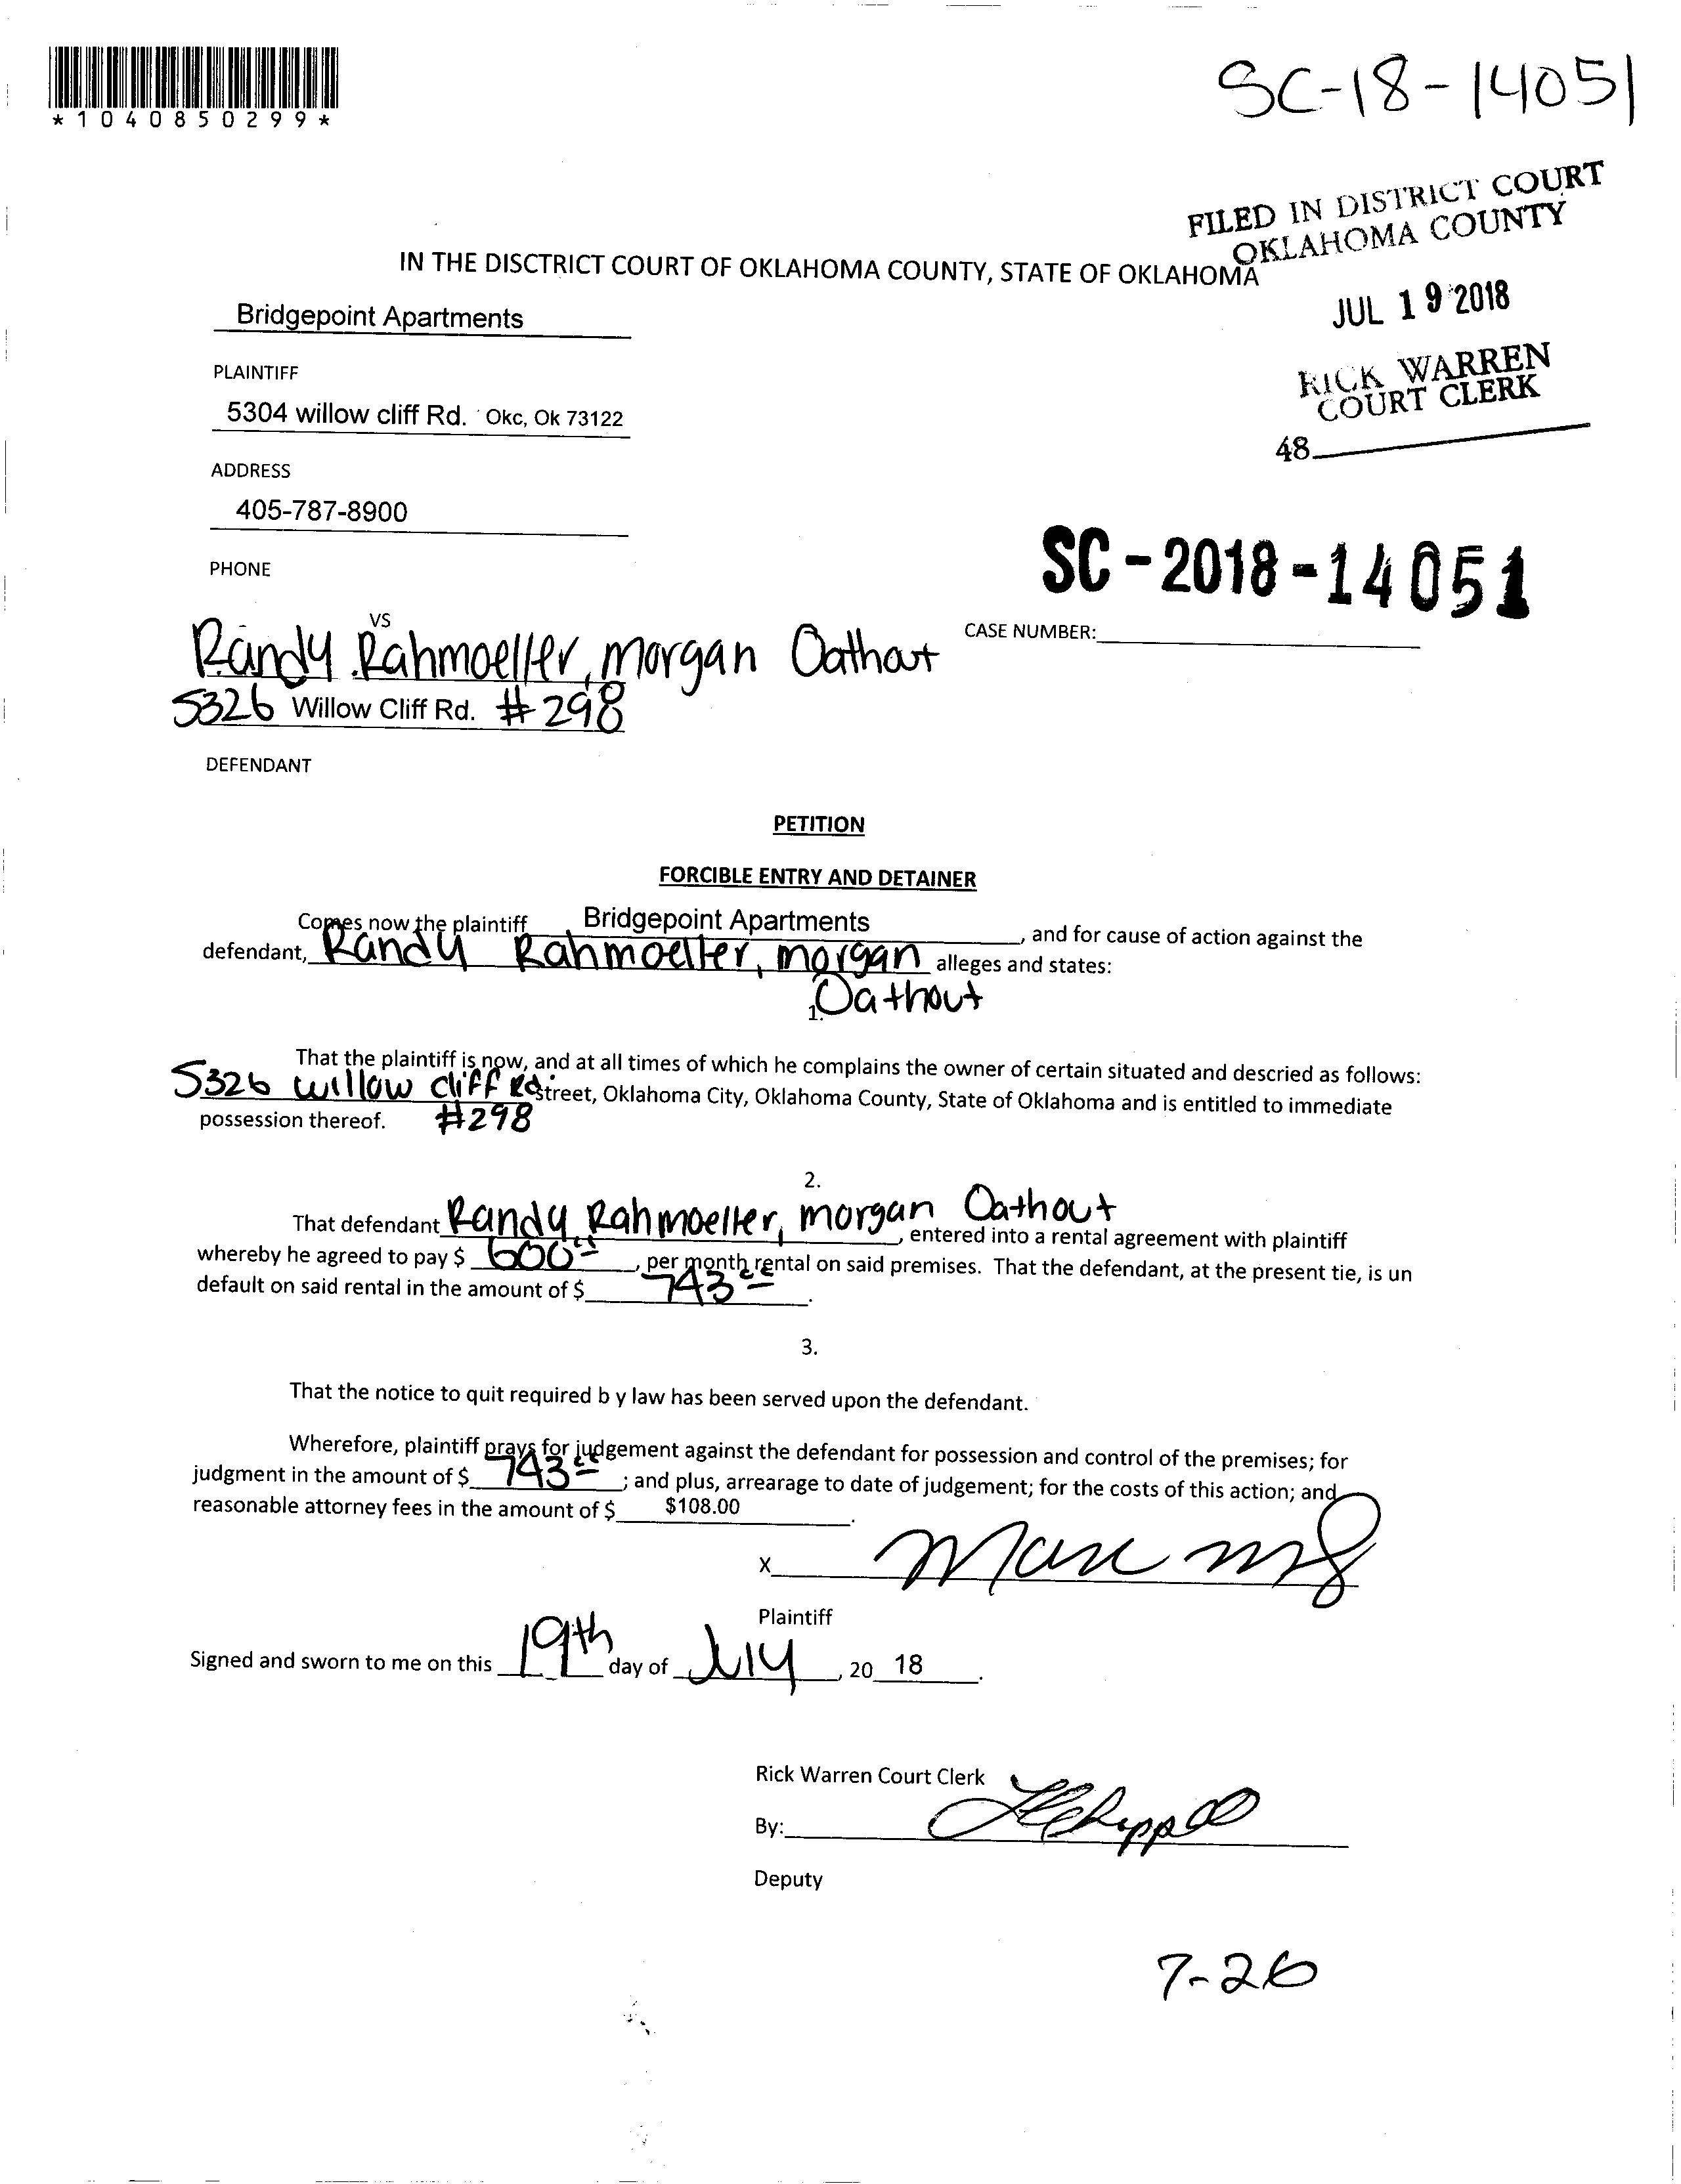 *1040850299*
SC-18-14051
FILED IN DISTRICT COURT
OKLAHOMA COUNTY
IN THE DISCTRICT COURT OF OKLAHOMA COUNTY, STATE OF OKLAHOMA
JUL 19 2018
RICK WARREN
COURT CLERK
48
Bridgepoint Apartments
PLAINTIFF
5304 willow cliff Rd. Okc, Ok 73122
ADDRESS
405-787-8900
PHONE
SC-2018-14051
CASE NUMBER:
VS
Randy Rahmoeller, morgan Oathout
5326 Willow Cliff Rd. #298
DEFENDANT
PETITION
FORCIBLE ENTRY AND DETAINER
Comes now the plaintiff Bridgepoint Apartments, and for cause of action against the
defendant, Randy Rahmoeller, morgan alleges and states:
Oathout
1.
That the plaintiff is now, and at all times of which he complains the owner of certain situated and descried as follows:
5326 Willow Cliff Rd street, Oklahoma City, Oklahoma County, State of Oklahoma and is entitled to immediate
possession thereof. #298
2.
That defendant Randy Rahmoeller, morgan Oathout, entered into a rental agreement with plaintiff
whereby he agreed to pay $ 600, per month rental on said premises. That the defendant, at the present tie, is un
default on said rental in the amount of $ 743.
3.
That the notice to quit required b y law has been served upon the defendant.
Wherefore, plaintiff prays for judgement against the defendant for possession and control of the premises; for
judgment in the amount of $ 743; and plus, arrearage to date of judgement; for the costs of this action; and
reasonable attorney fees in the amount of $ $108.00.
X
Plaintiff
Signed and sworn to me on this 19th day of July, 20 18.
Rick Warren Court Clerk
By:
Deputy
7-26